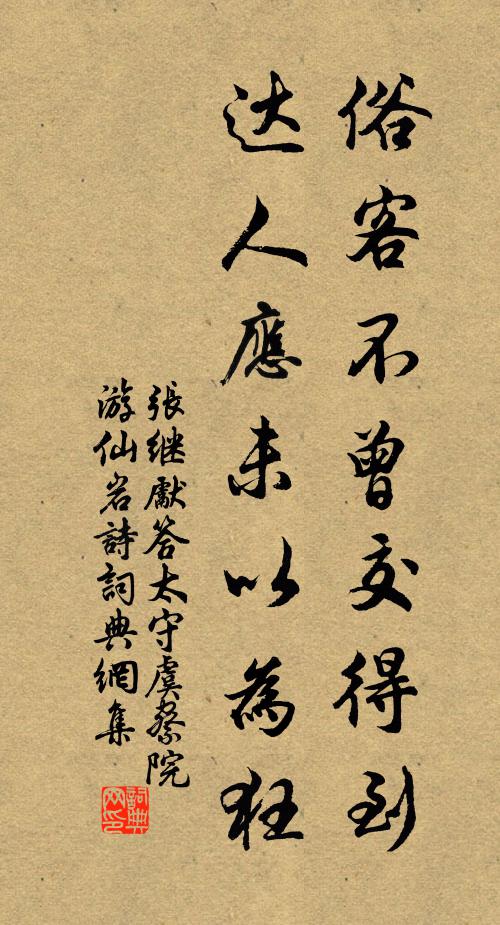 俗客不曾交得到
达人應未以為狂
張继獻答太守虞察院
游仙岩詩詞典網集
詞典网印